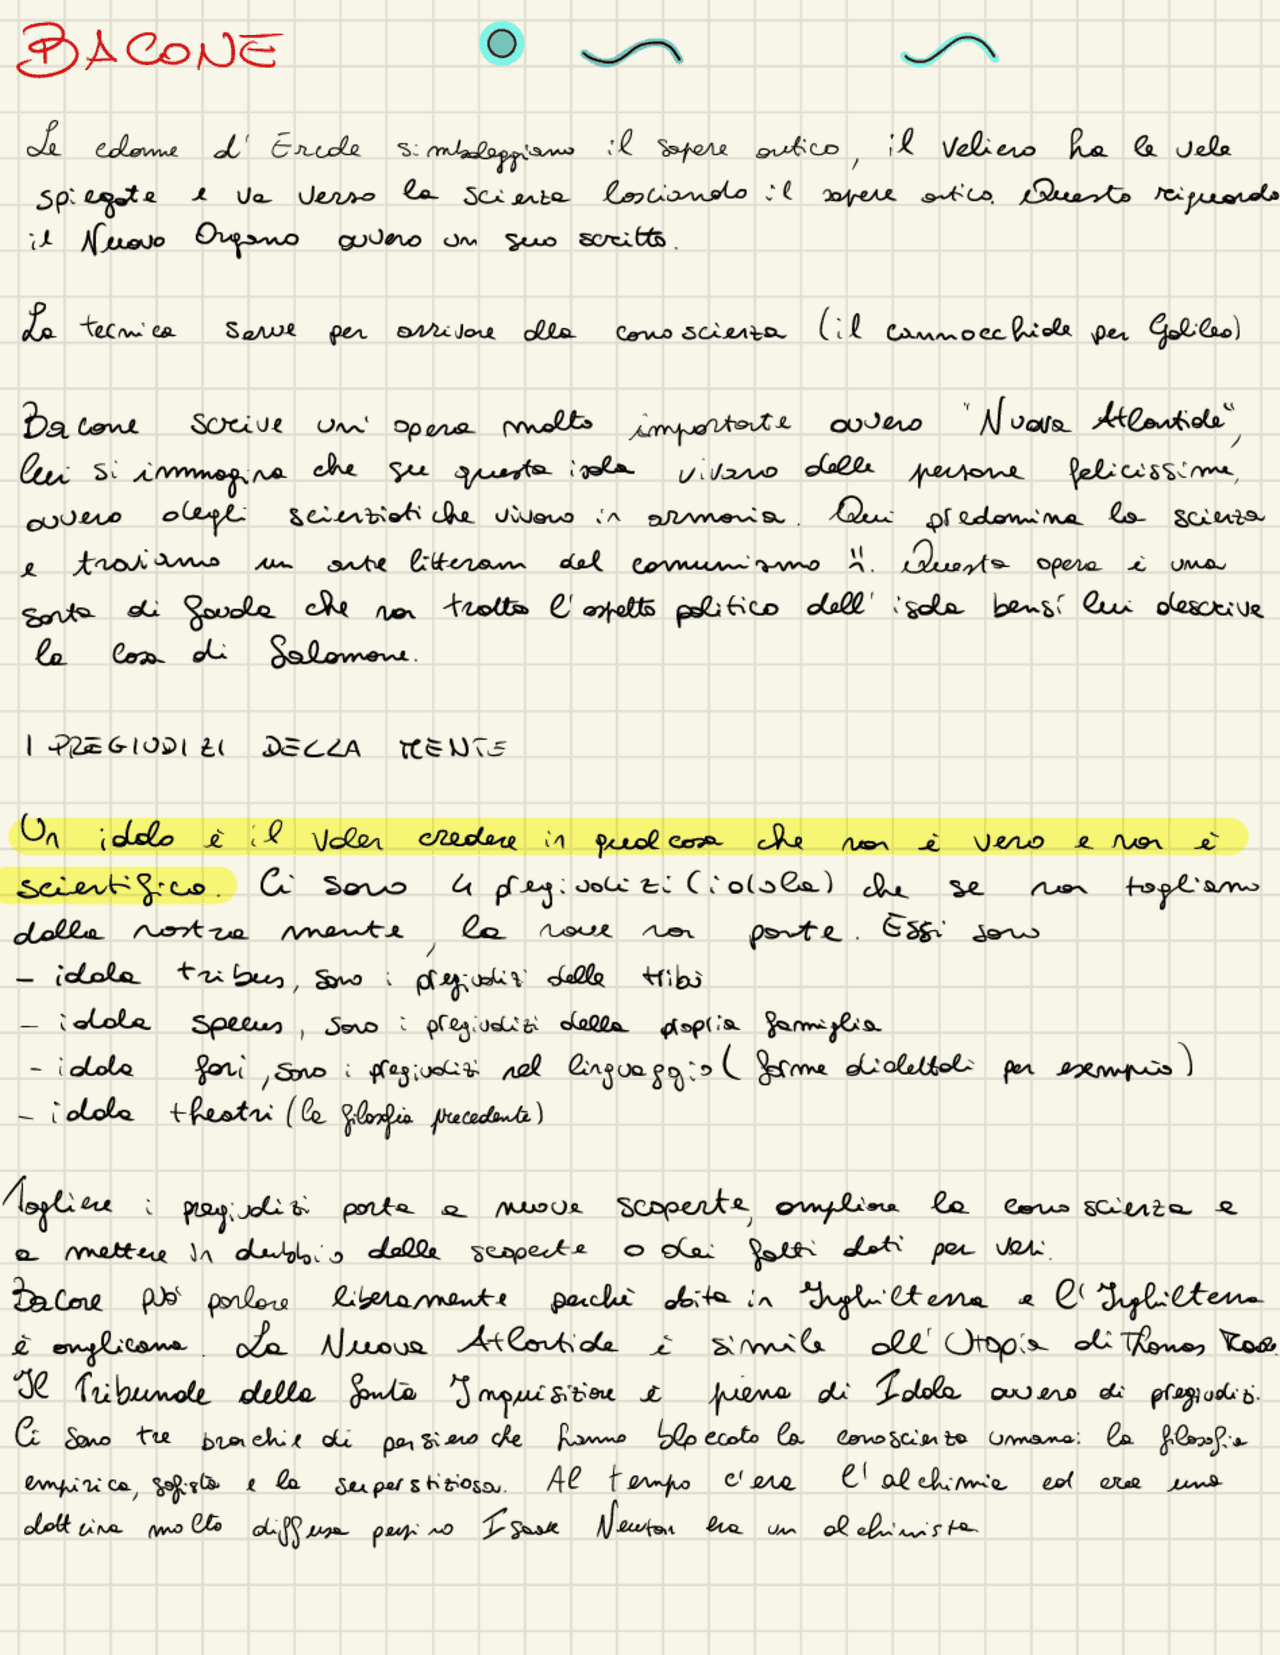 BACONE
Le colonne d'Ercole simboleggiano il sapere antico, il veliero ha le vele
spiegate e va verso la scienza lasciando il sapere antico. Questo riguarda
il Nuovo Organo ovvero un suo scritto.
La tecnica serve per arrivare alla conoscienza (il cannocchiale per Galileo)
Bacone scrive un'opera molto importante ovvero "Nuova Atlantide",
lui si immagina che su questa isola vivano delle persone felicissime,
ovvero degli scienziati che vivono in armonia. Qui predomina la scienza
e troviamo un ante litteram del comunismo. Questa opera è una
sorta di favola che non tratta l'aspetto politico dell'isola bensì lui descrive
la casa di Salomone.
I PREGIUDIZI DELLA MENTE
Un idolo è il voler credere in qualcosa che non è vero e non è
scientifico. Ci sono 4 pregiudizi (idola) che se non togliamo
dalla nostra mente, la nave non parte. Essi sono
- idola tribus, sono i pregiudizi delle tribù
- idola specus, sono i pregiudizi della propria famiglia
- idola fori, sono i pregiudizi nel linguaggio (forme dialettali per esempio)
- idola theatri (la filosofia precedente)
Togliere i pregiudizi porta a nuove scoperte, ampliare la conoscienza e
a mettere in dubbio delle scoperte o dei fatti dati per veri.
Bacone può parlare liberamente perché abita in Inghilterra e l'Inghilterra
è anglicana. La Nuova Atlantide è simile all'Utopia di Thomas
Il Tribunale della Santa Inquisizione è piena di Idola ovvero di pregiudizi.
Ci sono tre branchie di pensiero che hanno bloccato la conoscienza umana: la filosofia
empirica, sofista e la superstiziosa. Al tempo c'era l'alchimia ed era una
dottrina molto diffusa persino Isaak Newton era un alchimista